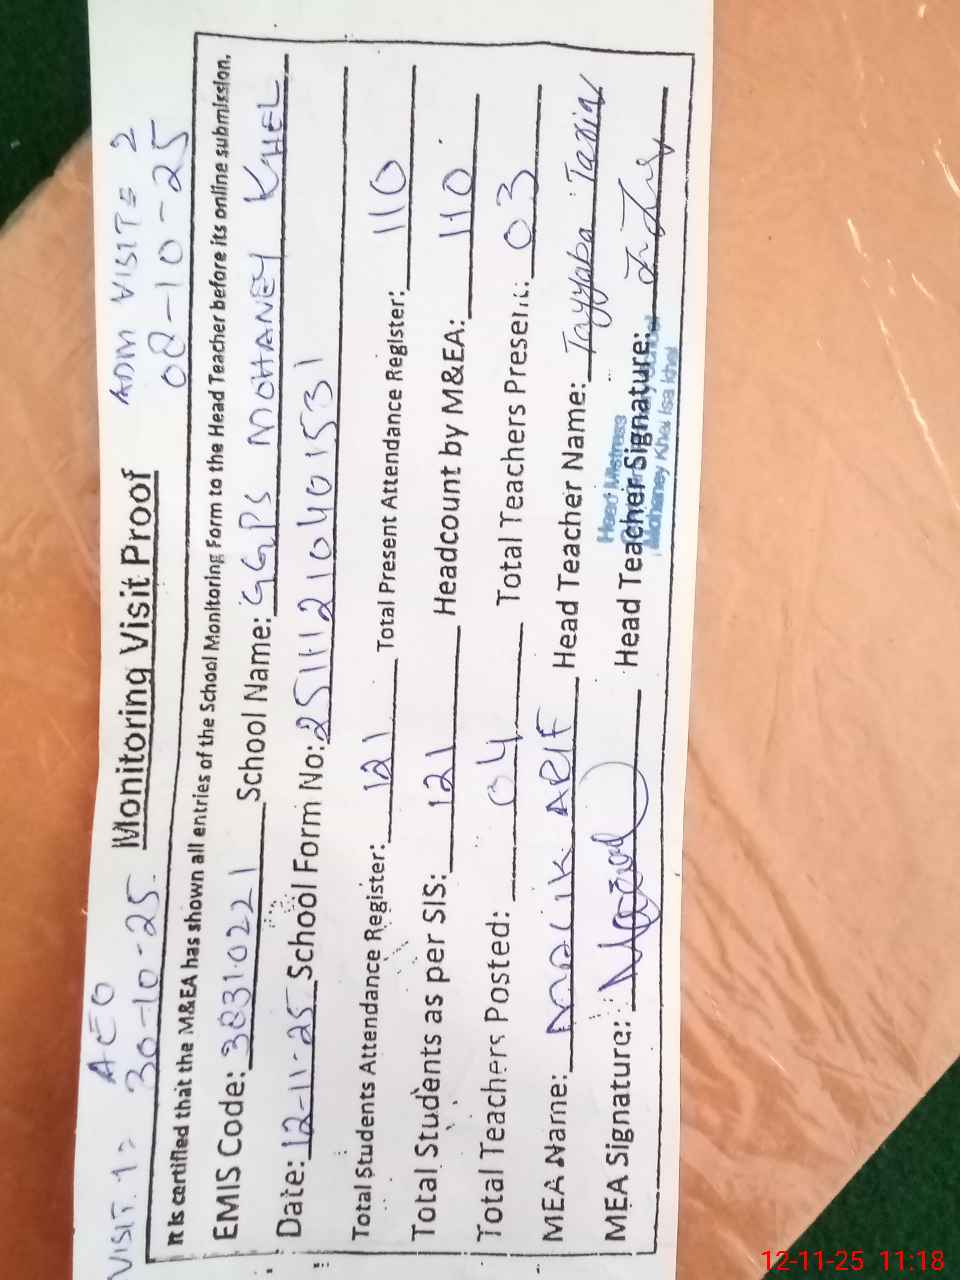 VISIT. 1 = AEO ADM VISIT = 2
30-10-25. Monitoring Visit Proof 08-10-25
It is certified that the M&EA has shown all entries of the School Monitoring Form to the Head Teacher before its online submission.
EMIS Code: 38310221 School Name: GGPS MOHANEY KHEL
Date: 12-11-25 School Form No: 25111210401531
Total Students Attendance Register: 121 Total Present Attendance Register: 110
Total Students as per SIS: 121 Headcount by M&EA: 110
Total Teachers Posted: 04 Total Teachers Present: 03
MEA Name: MALIK ARIF Head Teacher Name: Tayyaba
MEA Signature: Head Teacher Signature:
Head Mistress
Mohaney Khel Isa Khel
12-11-25 11:18